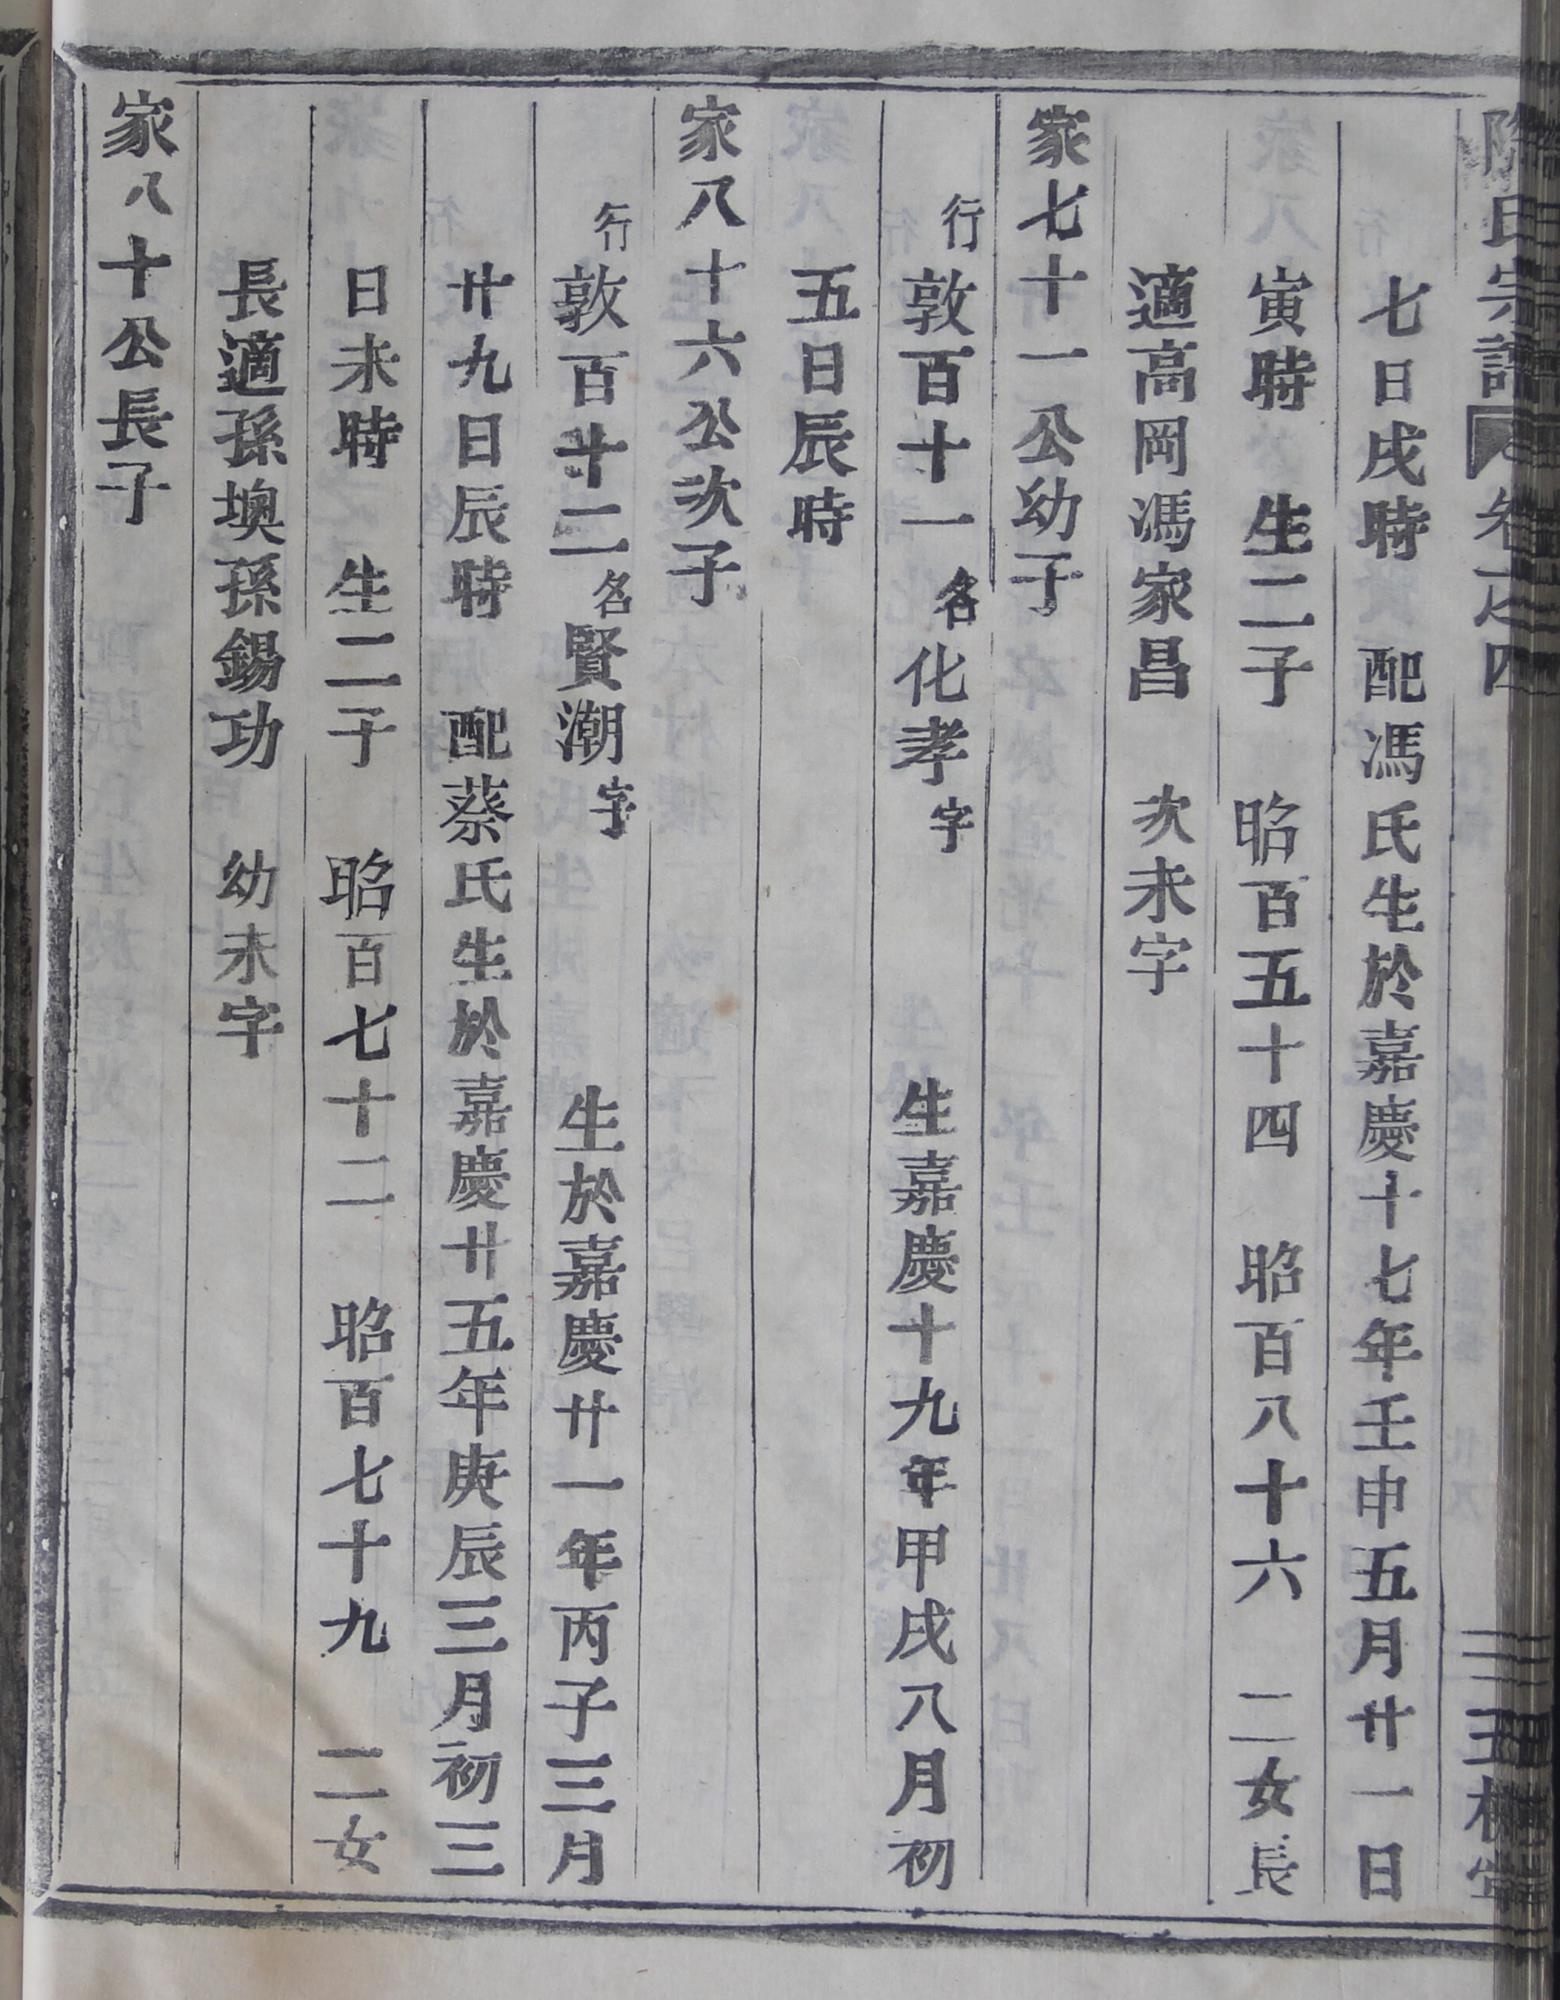 氏宗譜 卷之四
七日戌時 配馮氏生於嘉慶十七年壬申五月廿一日
寅時 生二子 昭百五十四 昭百八十六 二女長
適高岡馮家昌 次未字
家七十一公幼子
行敦百十一名化孝字 生嘉慶十九年甲戌八月初
五日辰時
家八十六公次子
行敦百廿二名賢潮字 生於嘉慶廿一年丙子三月
廿九日辰時 配蔡氏生於嘉慶廿五年庚辰三月初三
日未時 生二子 昭百七十二 昭百七十九 二女
長適孫墺孫錫功 幼未字
家八十公長子